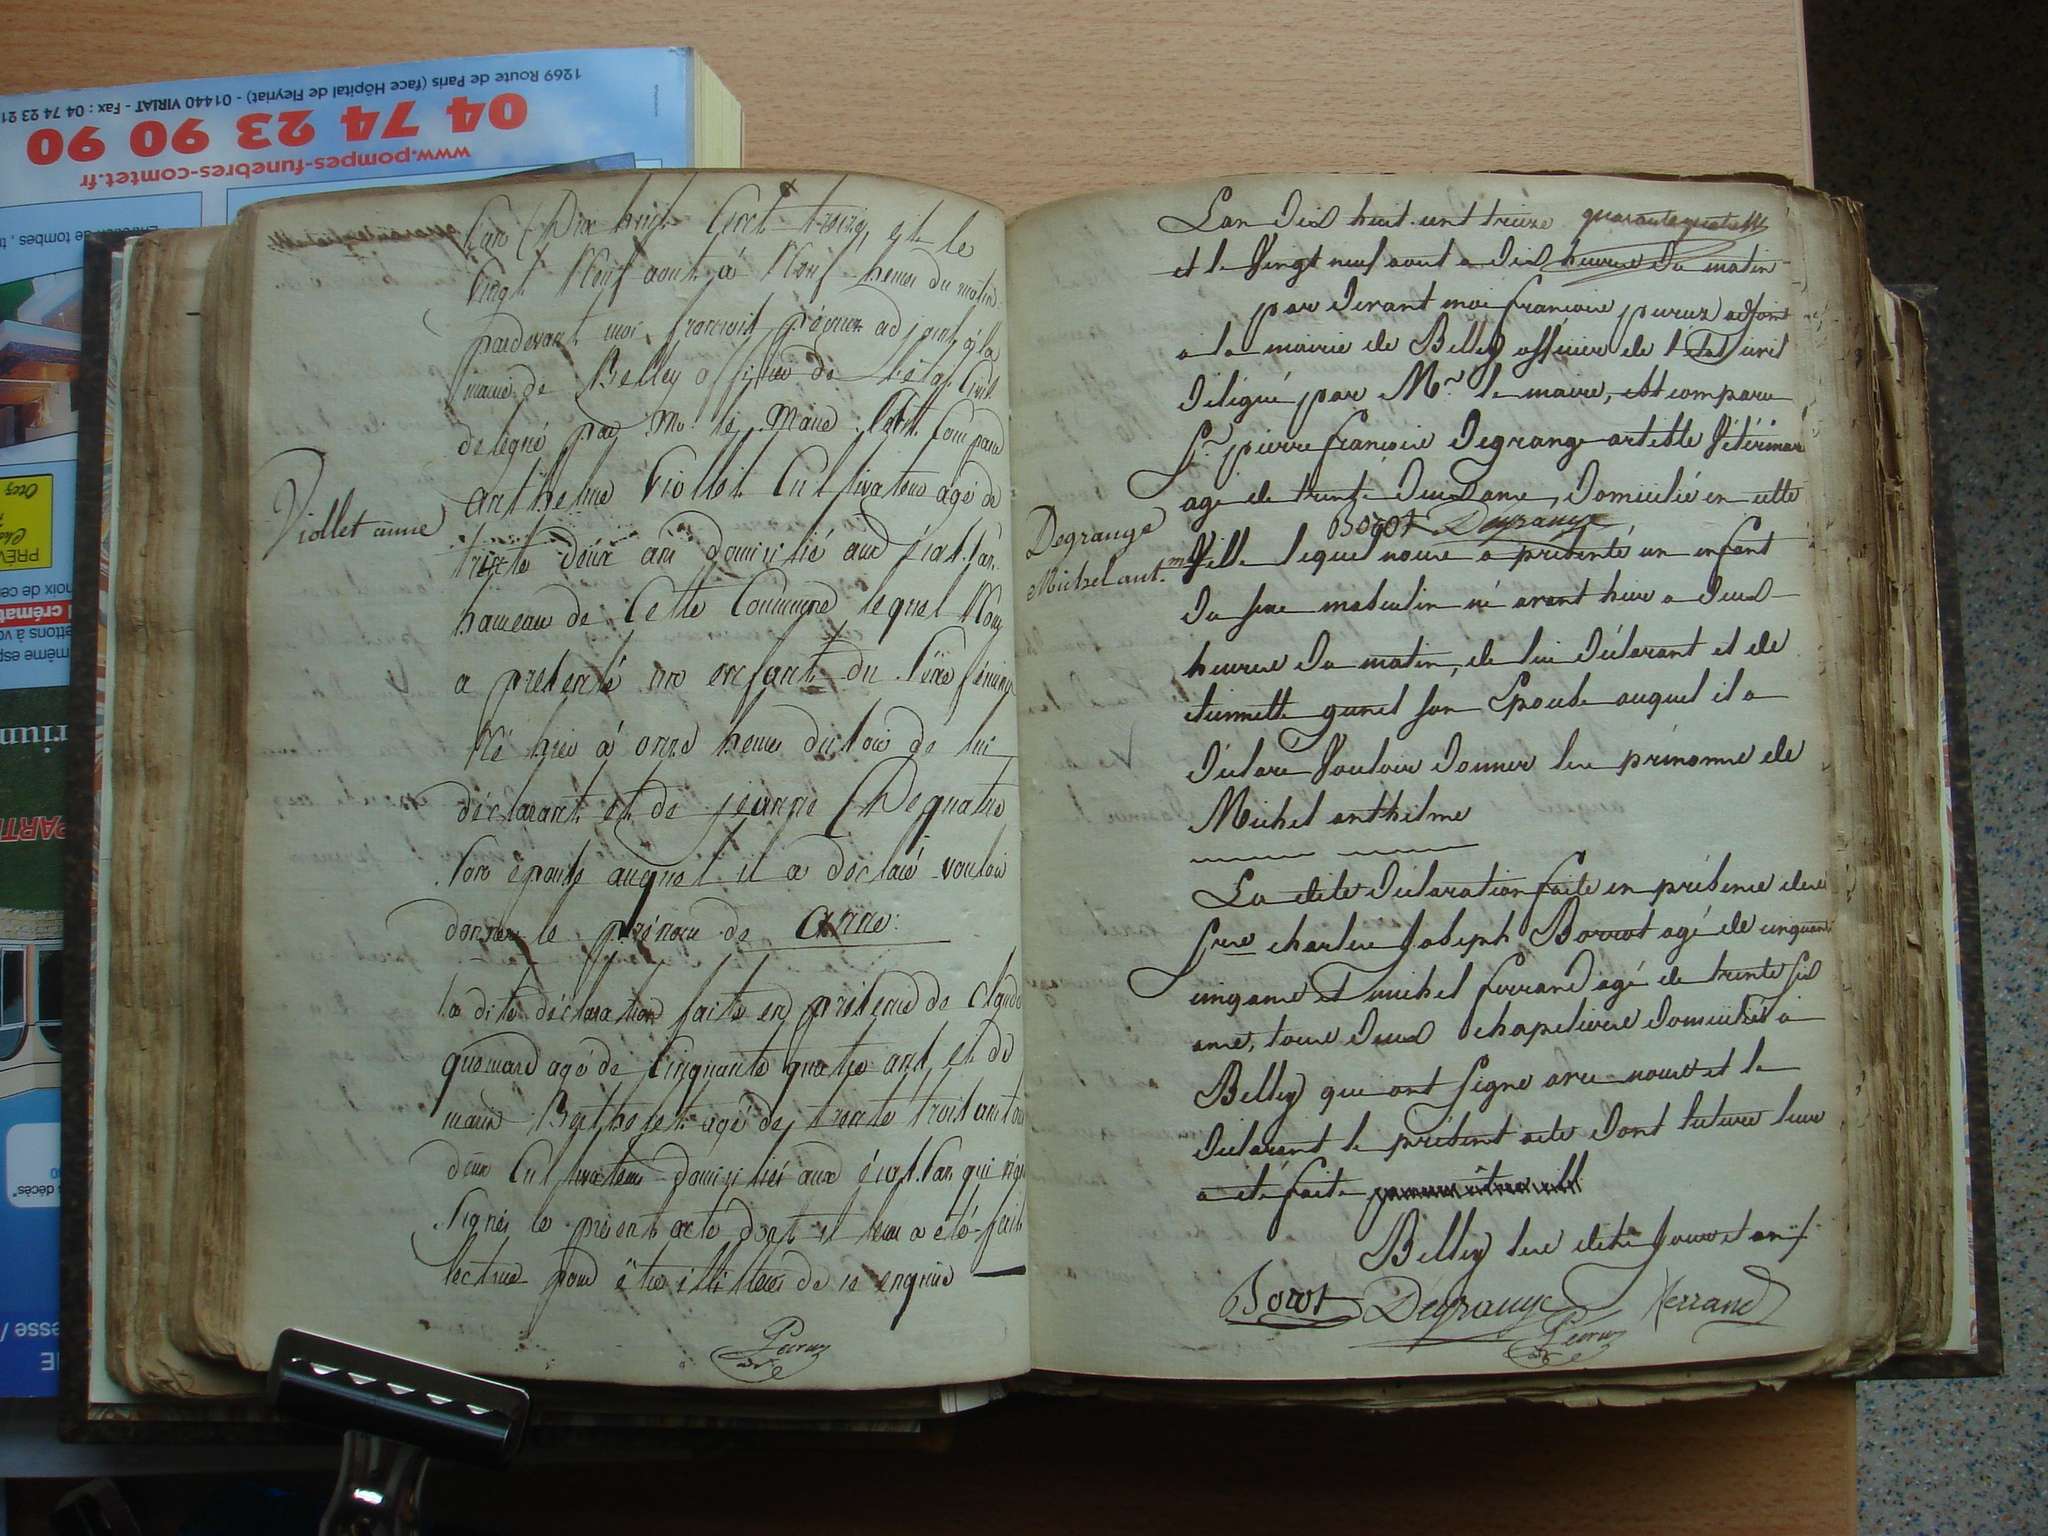 1269 Route de Paris (face Hôpital de Fleyriat) - 01440 VIRIAT - Fax : 04 74 23 21
04 74 23 90 90
www.pompes-funebres-comtet.fr
de tombes, t
PRÉV
Viollet anne
L'an Dix huit Cent treize, et le
Vingt Neuf aout à Neuf heures du matin
pardevant moi francois peruz adjoint à la
mairie de Belley officier de l'état Civil
délégué par Mr. le Maire Est Comparu
anthelme Viollet Cultivateur agé de
trente deux ans domicilié aux
hameau de Cette Commune lequel Nous
a presenté un enfant du sexe féminin
Né hier à onze heures du soir de lui
déclarant et de jeanne Dequatre
son épouse auquel il a déclaré vouloir
donner le prénom de anne.
la dite déclaration faite en présence de Claude
agé de Cinquante quatre ans et de
Berthelet agé de trente trois ans tous
deux Cultivateurs domiciliés aux qui n'ont
signés le présent acte dont il leur a été fait
lecture pour être illitérés de ce enquis
Peruz
Degrange
Michel ant.me
L'an Dix huit cent treize
et le Vingt neuf aout a Dix heures Du matin
par devant moi francois peruz adjoint
a la mairie de Belley officier de l'Etat civil
Délégué par Mr. le maire, est comparu
Sr. pierre francois Degrange artiste Vétérinaire
agé de trente Deux ans, Domicilié en cette
Borot Degrange
Ville lequel nous a présenté un enfant
Du sexe masculin né avant hier a Deux
heures Du matin, de lui Déclarant et de
etiennette gunet son Epouse auquel il a
Déclaré Vouloir Donner les prénoms de
Michel anthelme
La dite Déclaration faite en présence des
Srs charles Joseph Borrot agé de cinquante
cinq ans et michel ferrand agé de trente six
ans, tous Deux chapeliers Domiciliés a
Belley qui ont signé avec nous et le
Déclarant le présent acte Dont lecture leur
a été faite
Belley les dits Jour et an
Borot Degrange ferrand
Peruz